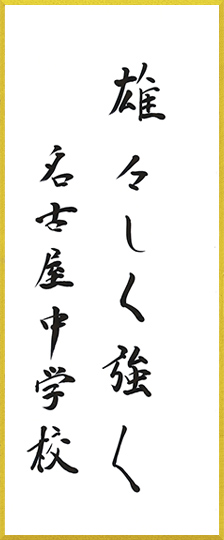 雄々しく強く
名古屋中学校